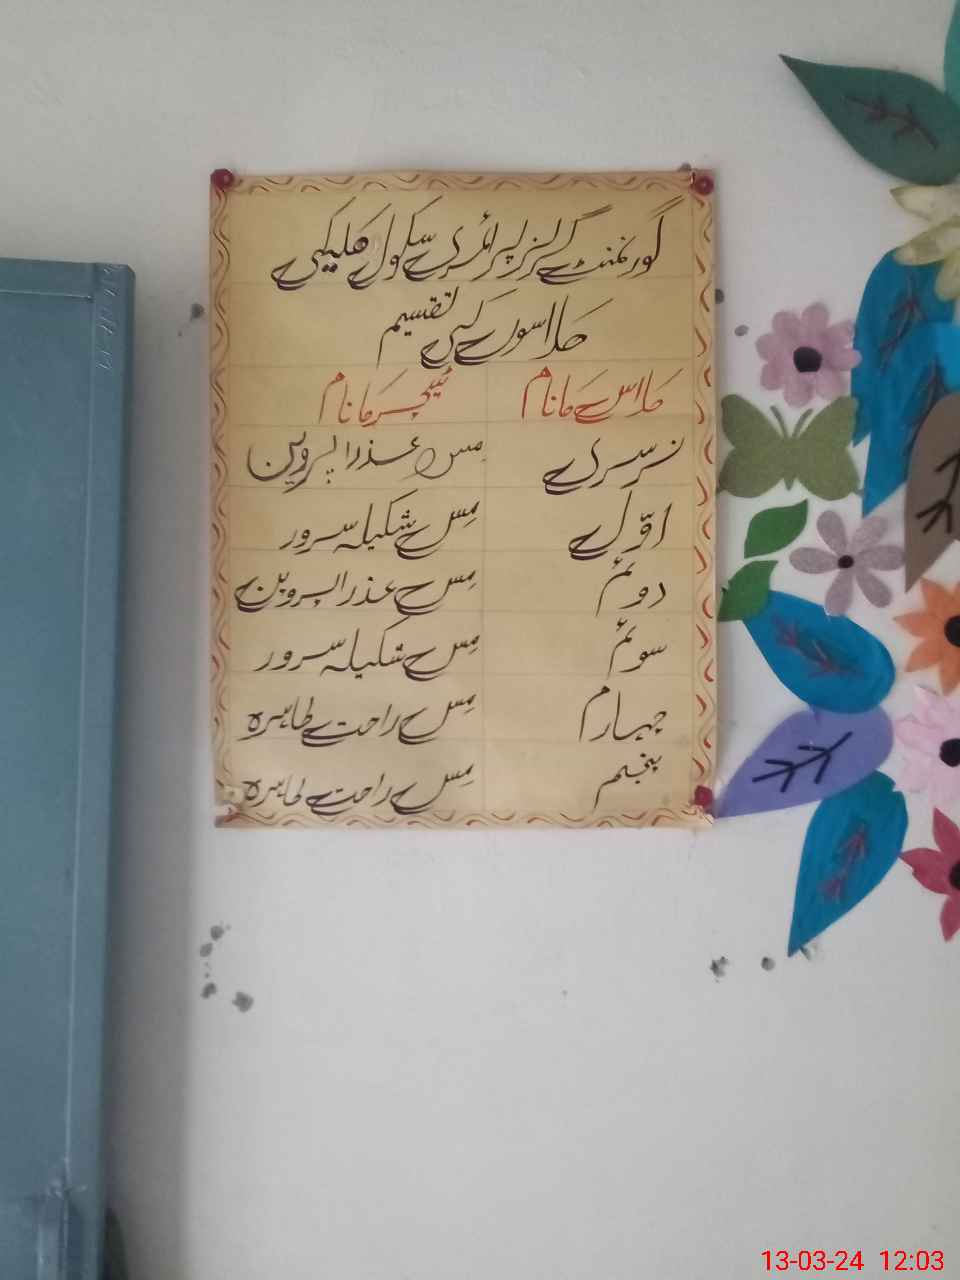 گورنمنٹ گرلز پرائمری سکول ھلیکی
کلاسوں کی تقسیم
کلاس کا نام ٹیچر کا نام
نرسری مس عذرا پروین
اوّل مس شکیلہ سرور
دوئم مس عذرا پروین
سوئم مس شکیلہ سرور
چہارم مس راحت طاہرہ
پنجم مس راحت طاہرہ
13-03-24 12:03